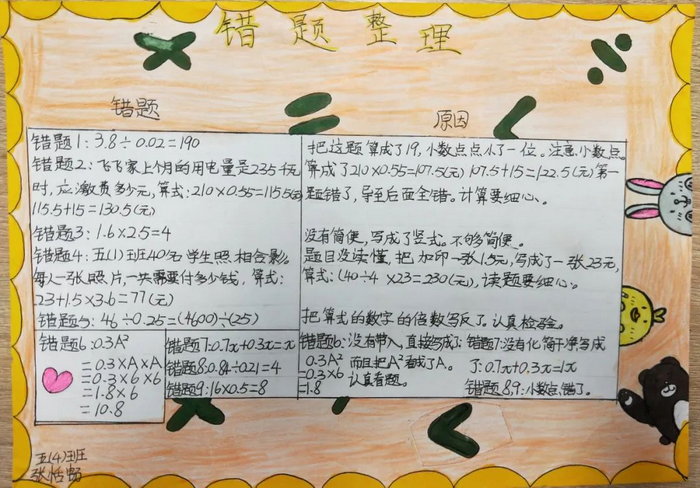 错题整理
错题
原因
错题1：3.8÷0.02=190
错题2：飞飞家上个月的用电量是235千瓦
时，应缴费多少元，算式：210×0.55=115.5(元)
115.5+15=130.5(元)
错题3：1.6×2.5=4
错题4：五(1)班40名学生照相合影
每人一张照片，一共需要付多少钱，算式：
23+1.5×3.6=77(元)
错题5：46÷0.25=(4600)÷(25)
把这题算成了19，小数点点小了一位。注意小数点。
算成了210×0.55=107.5(元) 107.5+15=122.5(元)第一
题错了，导至后面全错。计算要细心。
没有简便，写成了竖式。不够简便。
题目没读懂，把加印一张1.5元，写成了一张23元，
算式：(40÷4×23=230(元)，读题要细心。
把算式的数字的倍数写反了。认真检验。
错题6：0.3A²
=0.3×A×A
=0.3×6×6
=1.8×6
=10.8
错题7：0.7x+0.3x=x
错题8：0.84÷0.21=4
错题9：16×0.5=8
错题6：没有带入，直接写成了
0.3A² 而且把A²看成了A。
=0.3×6 认真看题。
=1.8
错题7：没有化简干净写成
了：0.7x+0.3x=1x
错题8,9：小数点错了。
五(4)班
张恬畅